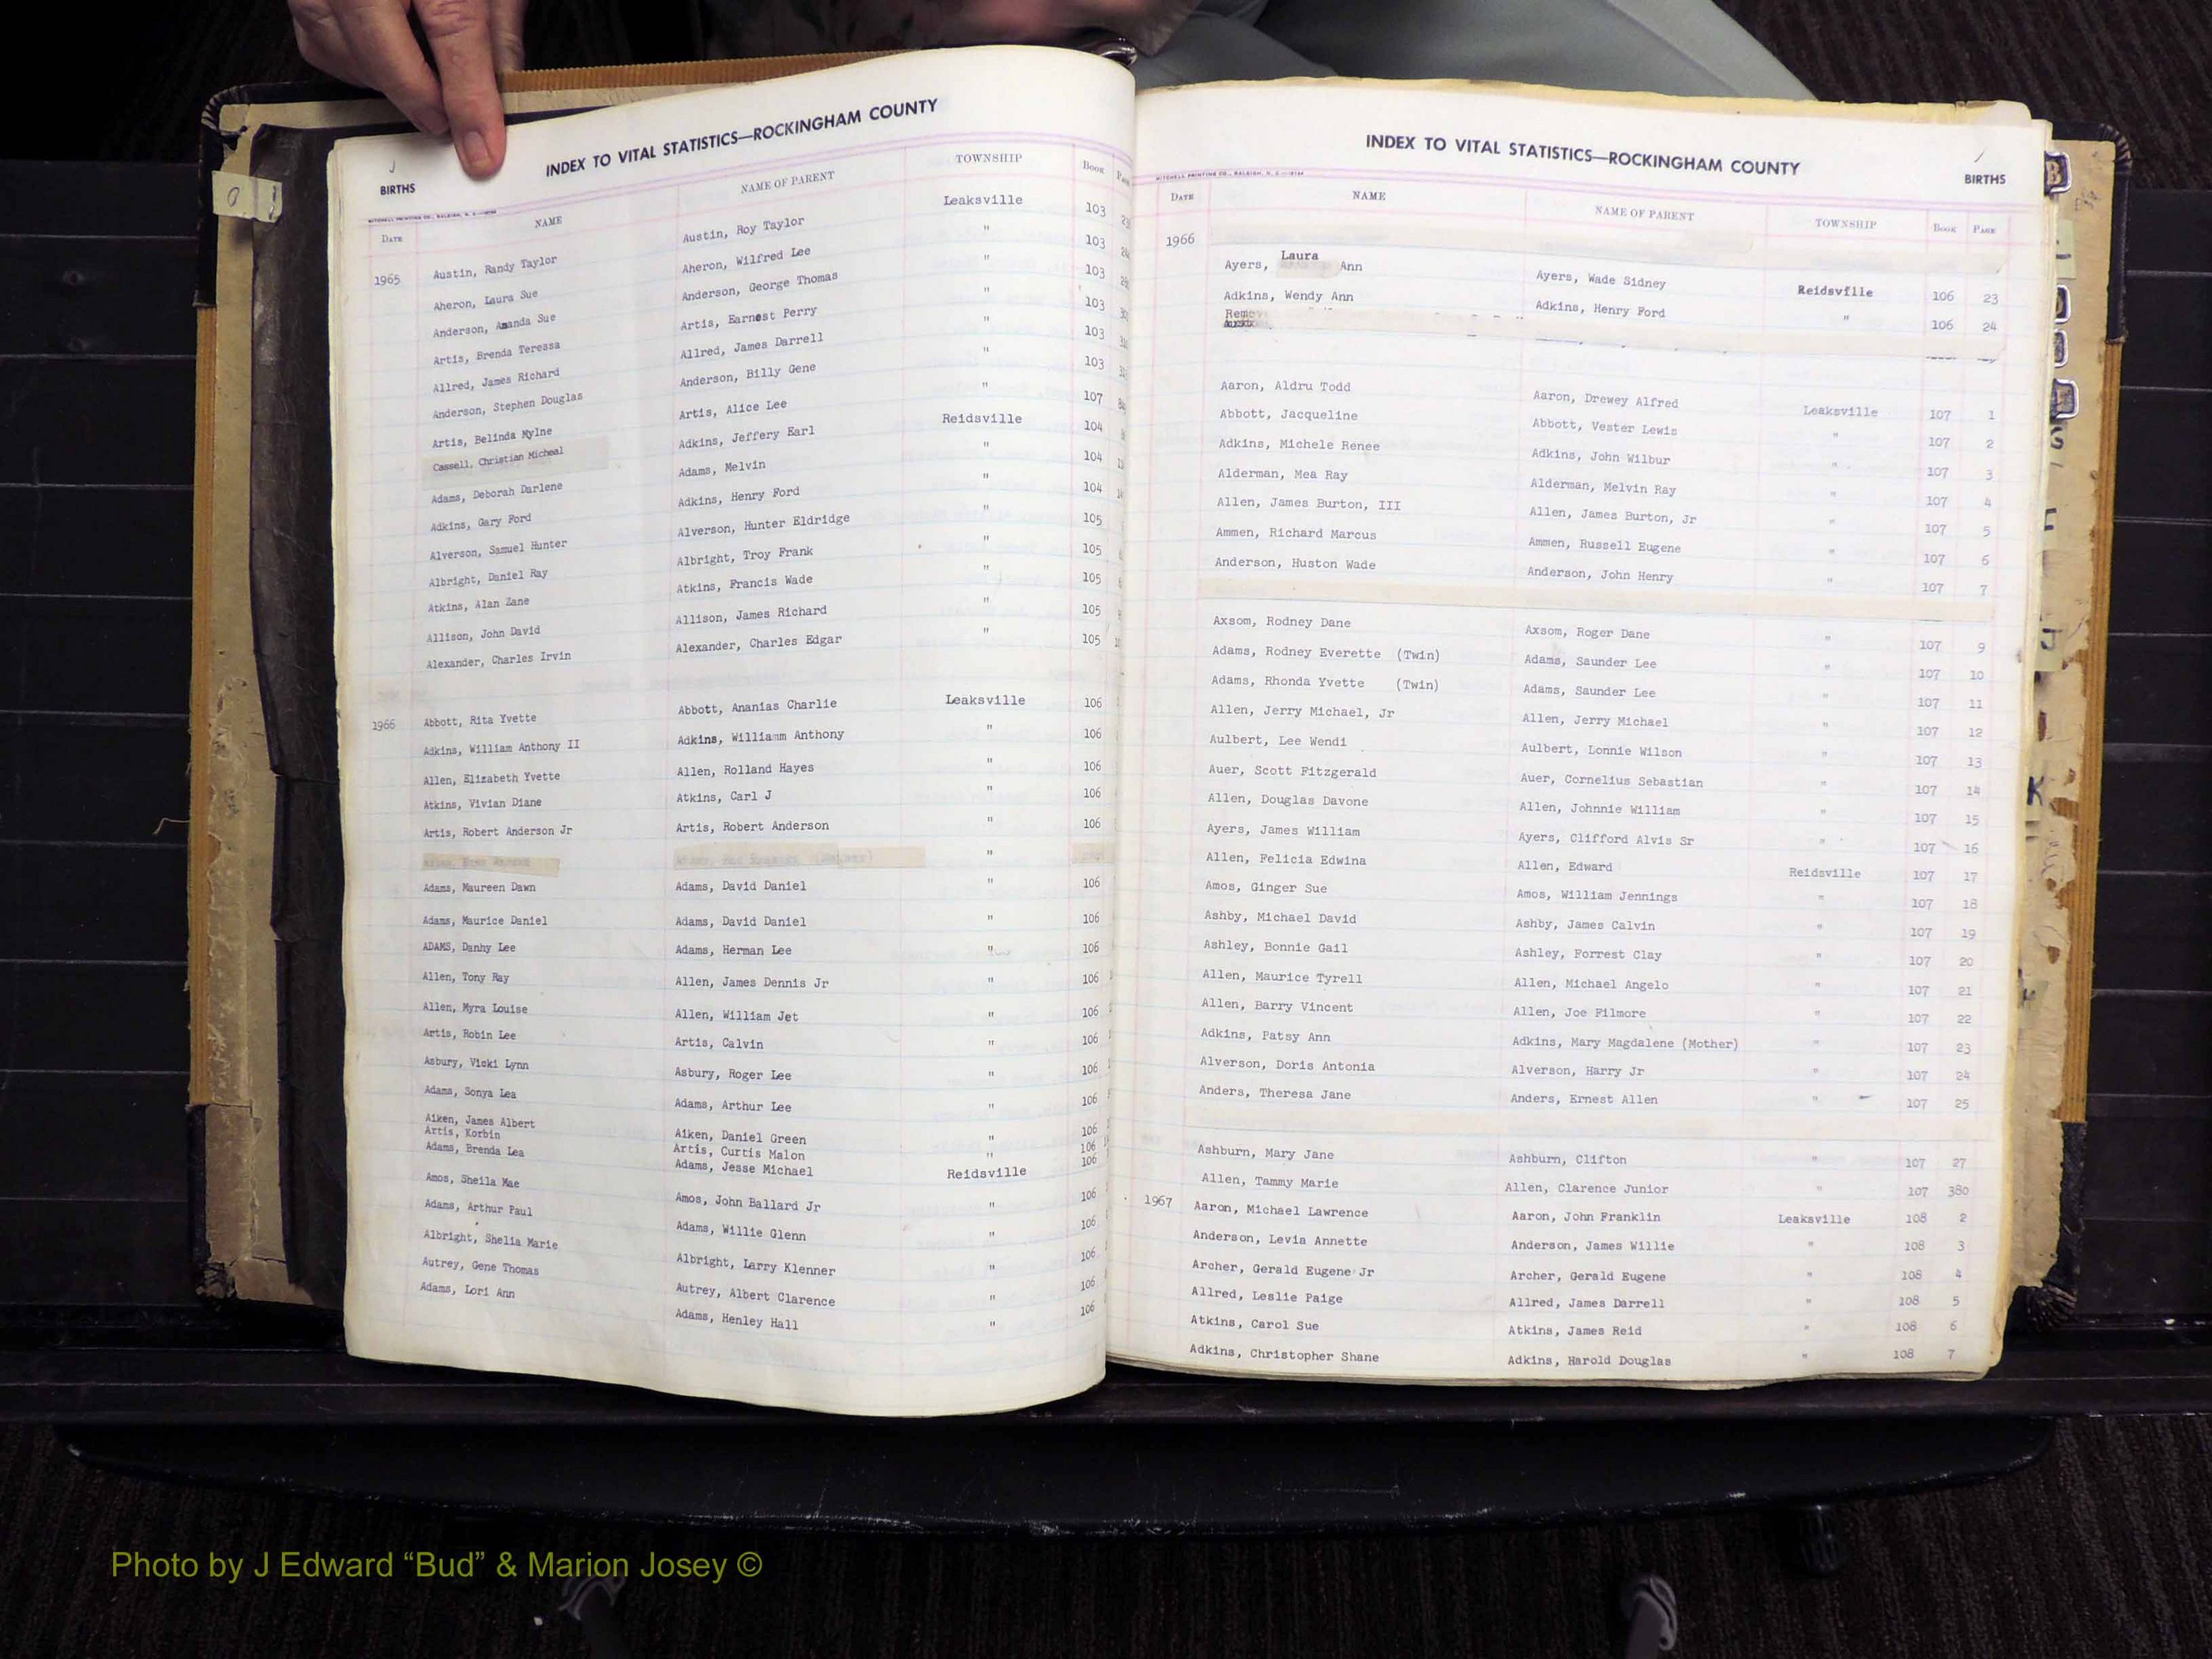 INDEX TO VITAL STATISTICS—ROCKINGHAM COUNTY
BIRTHS
DATE NAME NAME OF PARENT TOWNSHIP Book
1965 Austin, Randy Taylor Austin, Roy Taylor Leaksville 103
Aheron, Laura Sue Aheron, Wilfred Lee " 103
Anderson, Amanda Sue Anderson, George Thomas " 103
Artis, Brenda Teressa Artis, Earnest Perry " 103
Allred, James Richard Allred, James Darrell " 103
Anderson, Stephen Douglas Anderson, Billy Gene " 103
Artis, Belinda Mylne Artis, Alice Lee " 107
Cassell, Christian Micheal Adkins, Jeffery Earl Reidsville 104
Adams, Deborah Darlene Adams, Melvin " 104
Adkins, Gary Ford Adkins, Henry Ford " 104
Alverson, Samuel Hunter Alverson, Hunter Eldridge " 105
Albright, Daniel Ray Albright, Troy Frank " 105
Atkins, Alan Zane Atkins, Francis Wade " 105
Allison, John David Allison, James Richard " 105
Alexander, Charles Irvin Alexander, Charles Edgar " 105
1966 Abbott, Rita Yvette Abbott, Ananias Charlie Leaksville 106
Adkins, William Anthony II Adkins, Williamm Anthony " 106
Allen, Elizabeth Yvette Allen, Rolland Hayes " 106
Atkins, Vivian Diane Atkins, Carl J " 106
Artis, Robert Anderson Jr Artis, Robert Anderson " 106
"
Adams, Maureen Dawn Adams, David Daniel " 106
Adams, Maurice Daniel Adams, David Daniel " 106
ADAMS, Danhy Lee Adams, Herman Lee " 106
Allen, Tony Ray Allen, James Dennis Jr " 106
Allen, Myra Louise Allen, William Jet " 106
Artis, Robin Lee Artis, Calvin " 106
Asbury, Vicki Lynn Asbury, Roger Lee " 106
Adams, Sonya Lea Adams, Arthur Lee " 106
Aiken, James Albert Aiken, Daniel Green " 106
Artis, Korbin Artis, Curtis Malon " 106
Adams, Brenda Lea Adams, Jesse Michael Reidsville 106
Amos, Sheila Mae Amos, John Ballard Jr " 106
Adams, Arthur Paul Adams, Willie Glenn " 106
Albright, Shelia Marie Albright, Larry Klenner " 106
Autrey, Gene Thomas Autrey, Albert Clarence " 106
Adams, Lori Ann Adams, Henley Hall " 106
INDEX TO VITAL STATISTICS—ROCKINGHAM COUNTY
BIRTHS
MITCHELL PRINTING CO., RALEIGH, N. C.
DATE NAME NAME OF PARENT TOWNSHIP Book Page
1966
Laura
Ayers, Ann Ayers, Wade Sidney Reidsville 106 23
Adkins, Wendy Ann Adkins, Henry Ford " 106 24
Aaron, Aldru Todd Aaron, Drewey Alfred Leaksville 107 1
Abbott, Jacqueline Abbott, Vester Lewis " 107 2
Adkins, Michele Renee Adkins, John Wilbur " 107 3
Alderman, Mea Ray Alderman, Melvin Ray " 107 4
Allen, James Burton, III Allen, James Burton, Jr " 107 5
Ammen, Richard Marcus Ammen, Russell Eugene " 107 6
Anderson, Huston Wade Anderson, John Henry " 107 7
Axsom, Rodney Dane Axsom, Roger Dane " 107 9
Adams, Rodney Everette (Twin) Adams, Saunder Lee " 107 10
Adams, Rhonda Yvette (Twin) Adams, Saunder Lee " 107 11
Allen, Jerry Michael, Jr Allen, Jerry Michael " 107 12
Aulbert, Lee Wendi Aulbert, Lonnie Wilson " 107 13
Auer, Scott Fitzgerald Auer, Cornelius Sebastian " 107 14
Allen, Douglas Davone Allen, Johnnie William " 107 15
Ayers, James William Ayers, Clifford Alvis Sr " 107 16
Allen, Felicia Edwina Allen, Edward Reidsville 107 17
Amos, Ginger Sue Amos, William Jennings " 107 18
Ashby, Michael David Ashby, James Calvin " 107 19
Ashley, Bonnie Gail Ashley, Forrest Clay " 107 20
Allen, Maurice Tyrell Allen, Michael Angelo " 107 21
Allen, Barry Vincent Allen, Joe Filmore " 107 22
Adkins, Patsy Ann Adkins, Mary Magdalene (Mother) " 107 23
Alverson, Doris Antonia Alverson, Harry Jr " 107 24
Anders, Theresa Jane Anders, Ernest Allen " 107 25
Ashburn, Mary Jane Ashburn, Clifton " 107 27
Allen, Tammy Marie Allen, Clarence Junior " 107 380
1967 Aaron, Michael Lawrence Aaron, John Franklin Leaksville 108 2
Anderson, Levia Annette Anderson, James Willie " 108 3
Archer, Gerald Eugene Jr Archer, Gerald Eugene " 108 4
Allred, Leslie Paige Allred, James Darrell " 108 5
Atkins, Carol Sue Atkins, James Reid " 108 6
Adkins, Christopher Shane Adkins, Harold Douglas " 108 7
Photo by J Edward “Bud” & Marion Josey ©